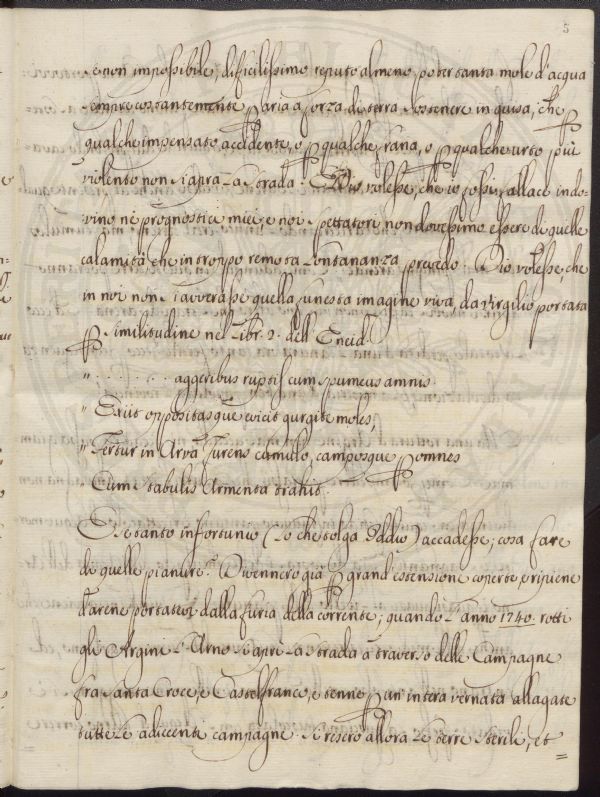 5
se non impossibile, dificilissimo reputo almeno, poter tanta mole d'acqua
sempre costantemente p aria a forza di terra sostenere in guisa, che p
qualche impensato accidente, o p qualche frana, o p qualche urto più
violento non s'apra la strada. Dio volesse, che io fossi fallace indo-
vino ne prognostici miei, e noi spettatori non dovessimo essere di quelle
calamità che in troppo remota lontananza prevedo. Dio volesse, che
in noi non s'avverasse quella funesta imagine viva, da Virgilio portata
p similitudine nel Libr. 2. dell'Eneid.
" . . . . . . . . aggeribus ruptis cum spumeus amnis.
" Exiit oppositasque evicit gurgite moles,
" Fertur in Arva furens cumulo, camposque p omnes
" Cum stabulis Armenta trahit.
Se tanto infortunio (lo che tolga Iddio) accadesse, cosa fare
di quelle pianure? Divennero già p grand'estensione coperte, e ripiene
d'arene portatevi dalla furia della corrente, quando l'anno 1740. rotti
gli Argini l'Arno s'aprè la strada a traverso delle Campagne
fra Santa Croce, e Castelfranco, e tenne p un intera vernata allagate
tutte le adiacenti campagne. Si resero allora le terre sterili, et
=